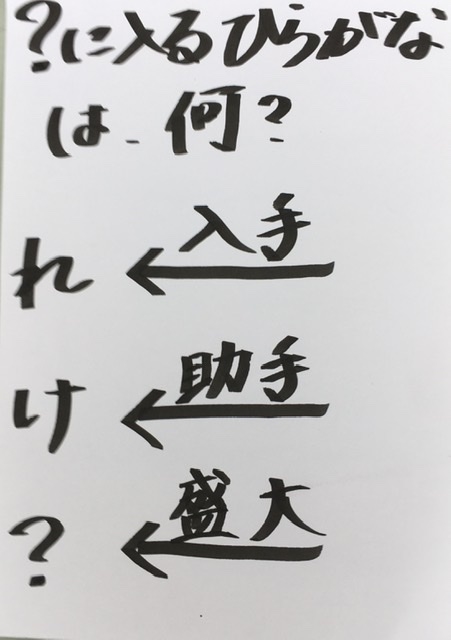 ?に入るひらがな
は、何?
入手
れ
助手
け
盛大
?